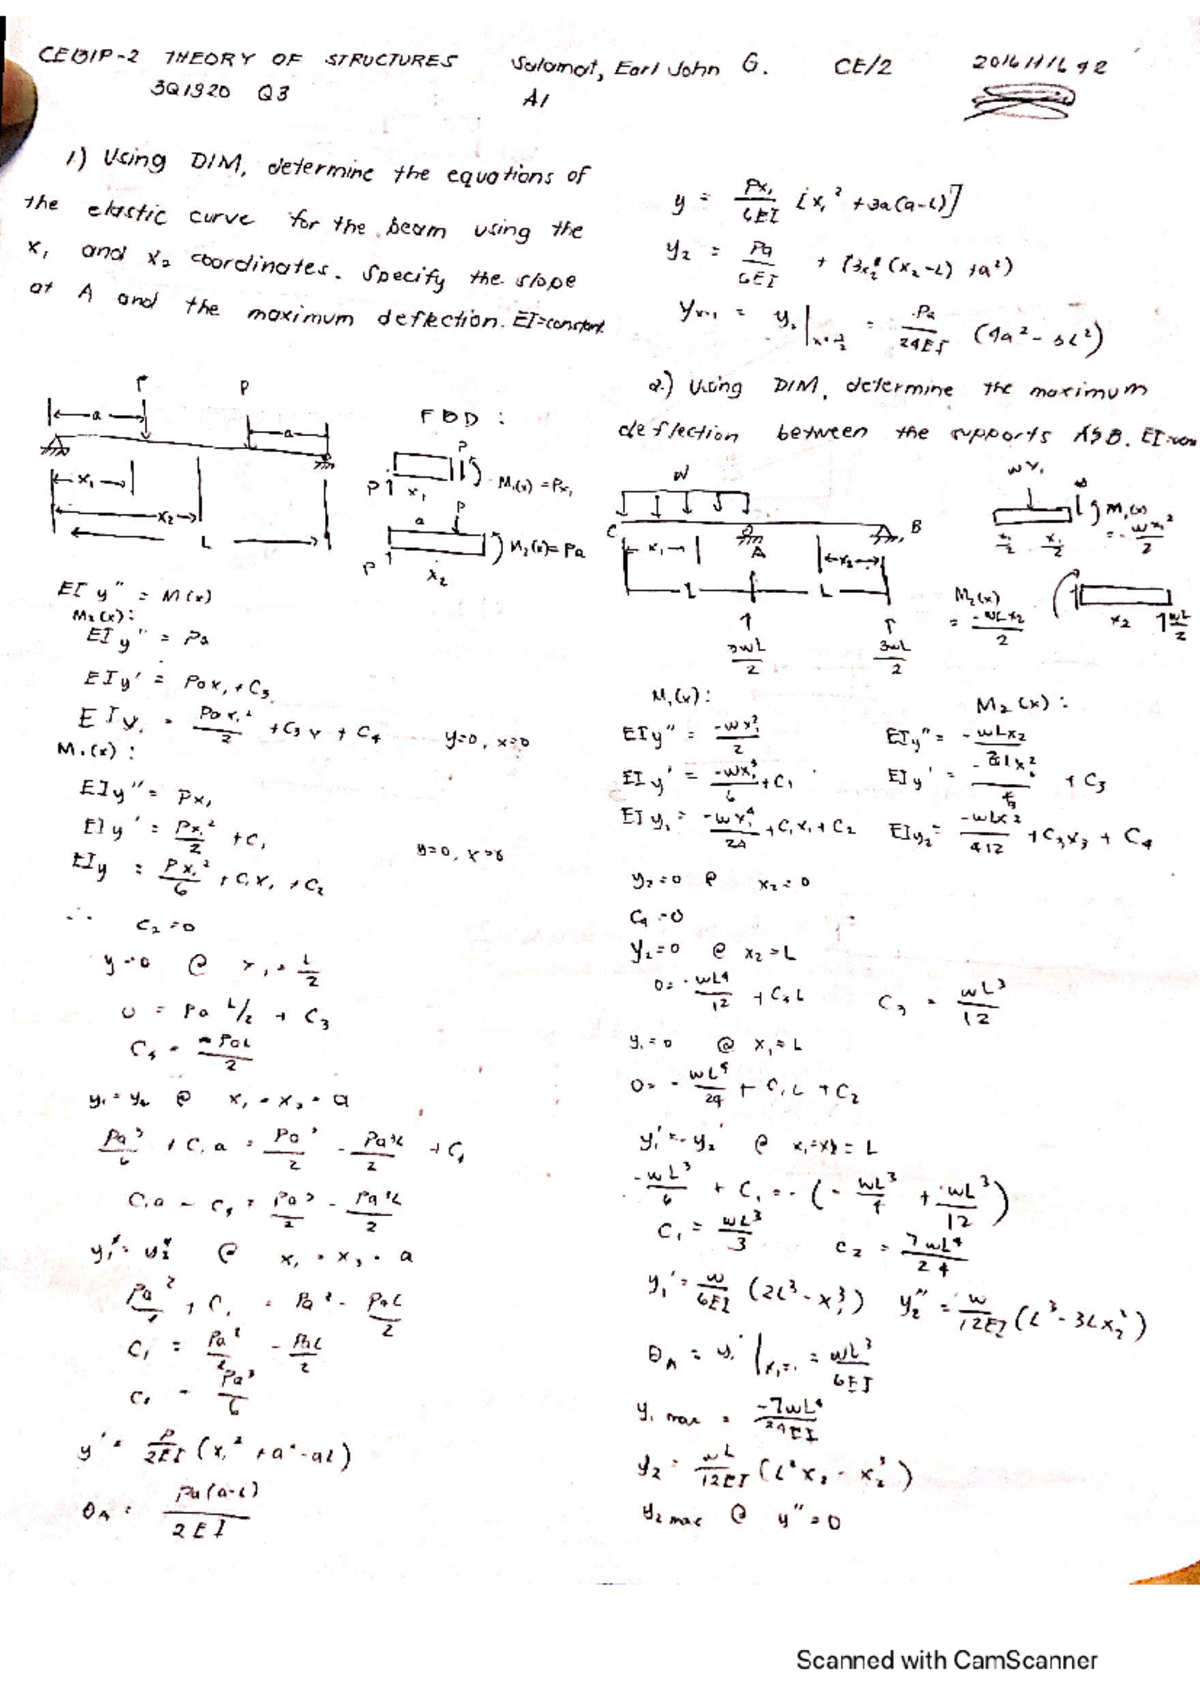 CE131P-2 THEORY OF STRUCTURES Salamat, Earl John G. CE/2
3Q1920 Q3 A1
1.) Using DIM, determine the equations of
the elastic curve for the beam using the
x₁ and x₂ coordinates. Specify the slope
at A and the maximum deflection. EI=constant.
P P
a a
x₁
x₂
L
FBD :
P
P x₁ M₁(x) = Px₁
a P
P x₂ M₂(x) = Pa
EI y'' = M(x)
M₂(x):
EI y'' = Pa
EI y' = Pax₁ + C₃
EI y. = Pax₁²/2 + C₃x + C₄ y=0, x=0
M₁(x) :
EI y'' = Px₁
EI y' = Px₁²/2 + C₁
EI y = Px₁²/6 + C₁x₁ + C₂
∴ C₂ = 0
y=0 @ x₁ = L/2
0 = Pa L/2 + C₃
C₃ = -PaL/2
y₁ = y₂ @ x₁ = x₂ = a
Pa³/6 + C₁a = Pa³/2 - Pa²L/2 + C₄
C₁a - C₄ = Pa³/2 - Pa²L/2
@ x₁ = x₂ = a
C₁ = Pa²/2 - PaL/2
C₄ = Pa³/6
y' = P/2EI (x₁² + a² - aL)
θA = Pa(a-L)/2EI
y = Px₁/6EI [x₁² + 3a(a-L)]
y₂ = Pa/6EI + (3x₂(x₂-L) + a²)
= Pa/24EI (4a² - 3L²)
2.) Using DIM, determine the maximum
deflection between the supports A & B.
w
C A B
x₁ x₂
L L
3wL/2 3wL/2
wx₁
x₁/2 x₁/2 M₁(x) = -wx₁²/2
M₂(x) = -wLx₂/2 x₂ wL/2
M₁(x): M₂(x) :
EI y'' = -wx₁²/2 EI y'' = -wLx₂/2
EI y' = -wx₁³/6 + C₁
EI y₁ = -wx₁⁴/24 + C₁x₁ + C₂
y₂=0 @ x₂ = 0
C₄ = 0
y₂=0 @ x₂ = L
0 = -wL⁴/12 + C₃L C₃ = wL³/12
y₁=0 @ x₁ = L
0 = -wL⁴/24 + C₁L + C₂
y₁' = -y₂' @ x₁=x₂ = L
-wL³/6 + C₁ = -(-wL³/4 + wL³/12)
C₁ = wL³/3 C₂ = 7wL⁴/24
y₁' = w/6EI (2L³ - x₁³) y₂'' = w/12EI (L³ - 3Lx₂²)
θA = = wL³/6EI
y₁ max = -7wL⁴/24EI
y₂ = wL/12EI (L²x₂ - x₂³)
y₂ max @ y''=0
Scanned with CamScanner